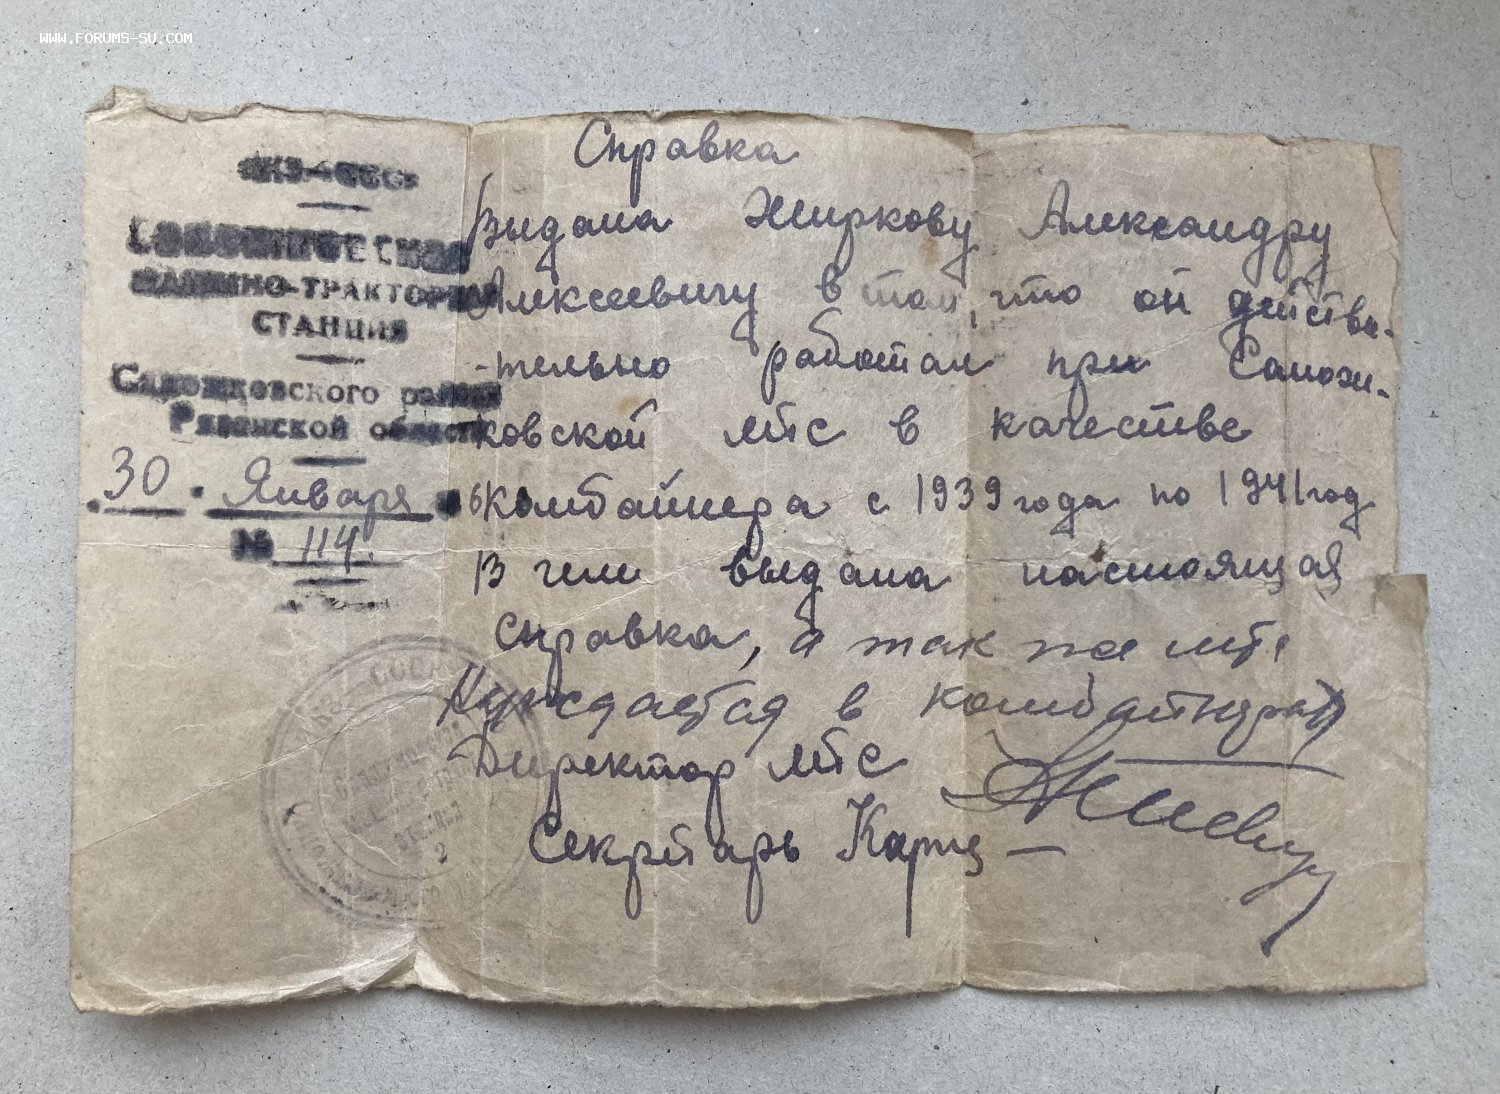 WWW.FORUMS-SU.COM
МАШИННО-ТРАКТОРНАЯ
СТАНЦИЯ
Сапожковского района
Рязанской области
30 Января
№ 114.
Справка
Выдана Жиркову Александру
Алексеевичу в том, что он действи-
-тельно работал при Сапож-
ковской мтс в качестве
комбайнера с 1939 года по 1941 год
В чем выдана настоящая
справка, а так же мтс
Нуждается в комбайнерах
Директор мтс
Секретарь